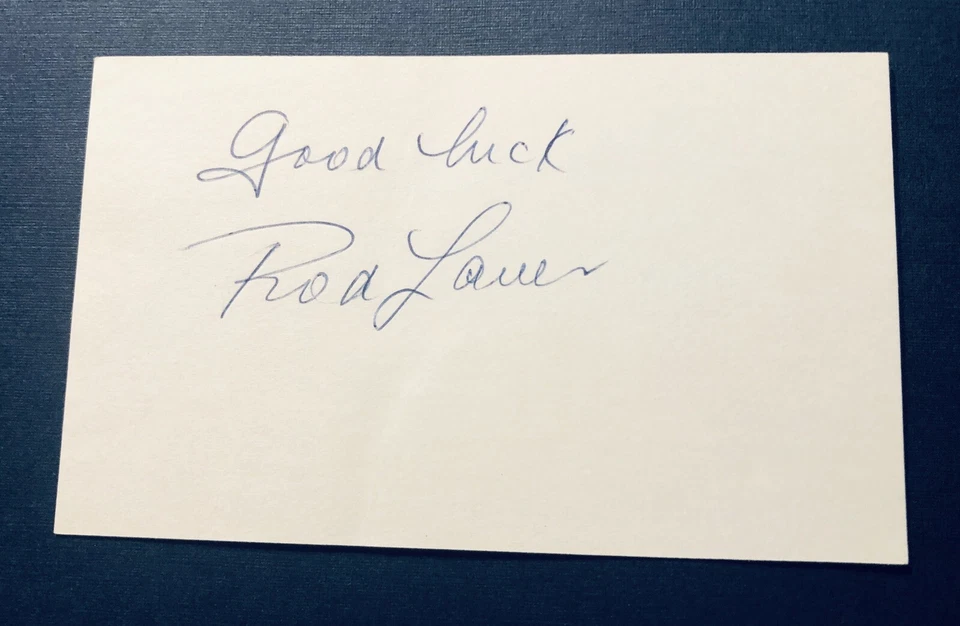 Good luck
Rod Laver